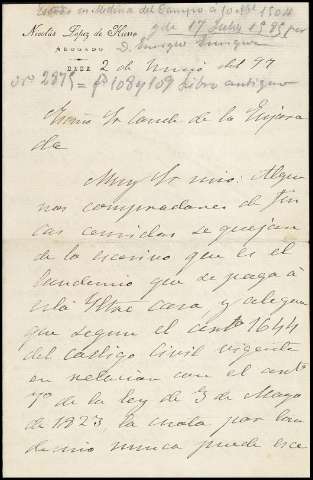 en Medina del Campo a 10 1504
Nicolás López de Haro
y de 17 Julio 1585 por
ABOGADO
D. Enrique Enriquez
DIEZ
2 de Junio del 97
nº 2875 = fº 108 y 109 Libro antiguo
Excmo Sr Conde de la
da
Muy Sr mio: Algu
nos compradores de fin
cas se quejan
de lo excesivo que es el
laudemio que se paga á
esta Iltre casa, y alegan
que segun el artº 1644
del Codigo Civil vigente
en relacion con el artº
7º de la ley de 3 de Mayo
de 1823, la cuota por lau
demio nunca puede exce